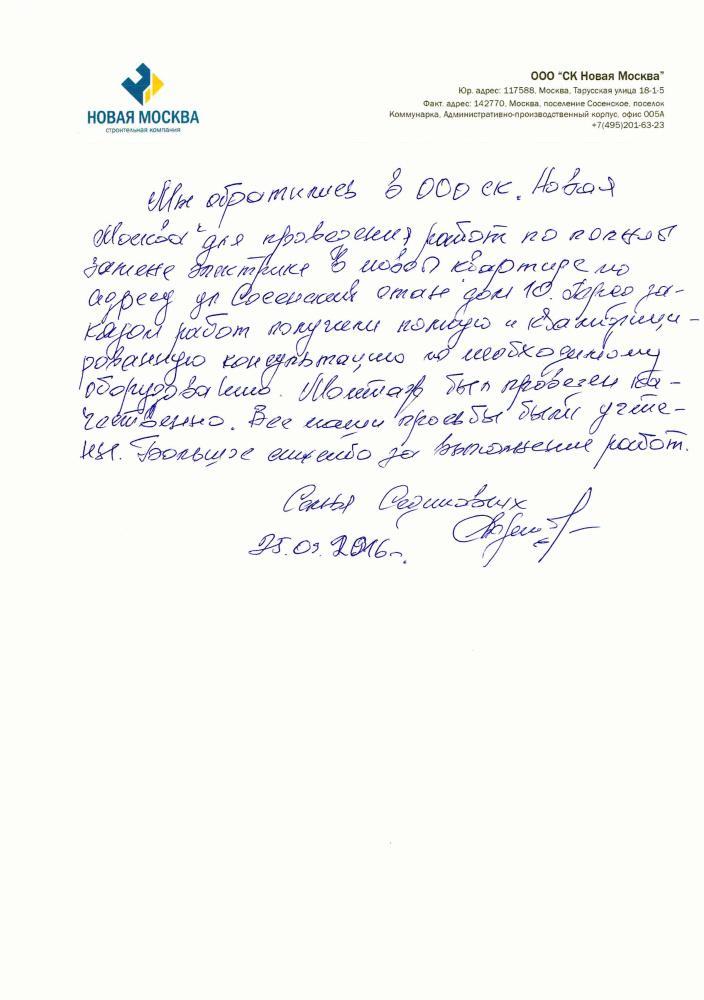 НОВАЯ МОСКВА
строительная компания
ООО "СК Новая Москва"
Юр. адрес: 117588, Москва, Тарусская улица 18-1-5
Факт. адрес: 142770, Москва, поселение Сосенское, поселок
Коммунарка, Административно-производственный корпус, офис 005А
+7(495)201-63-23
Мы обратились в ООО СК „Новая
Москва" для проведения работ по полной
замене электрике в новой квартире по
адресу ул Сосенский стан дом 10. Перед за-
казом работ получили полную и квалифици-
рованную консультацию по необходимому
оборудованию. Монтаж был проведен ка-
чественно. Все наши просьбы были учте-
ны. Большое спасибо за выполнение работ.
Семья
25.09.2016г.